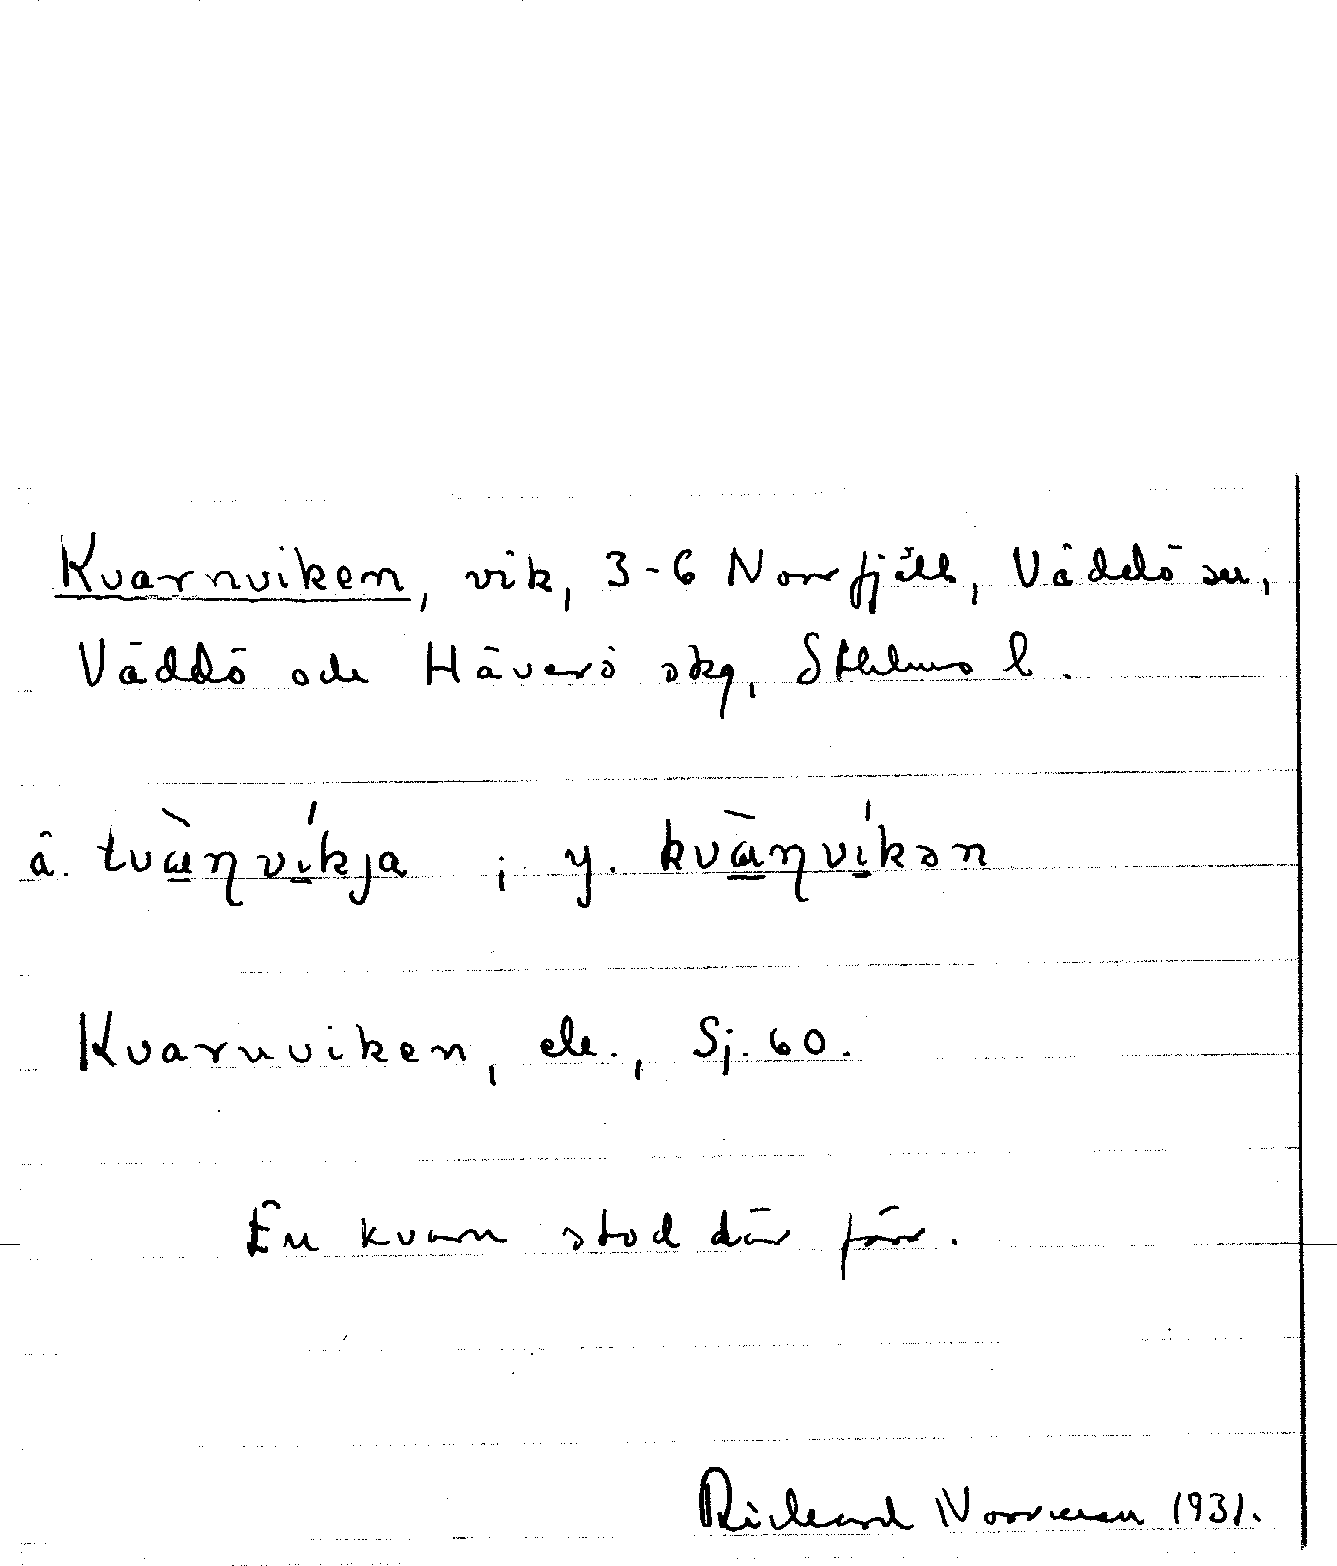 Kvarnviken, vik, 3-6 Norrfjäll, Väddö sn,
Väddö och Häverö skg, Sthlms l.
ä. tvàꞃnvíkja ; y. kvàꞃnvíkən
Kvarnviken, ek., Sj. 60.
En kvarn stod där förr.
Richard Norrman 1931.